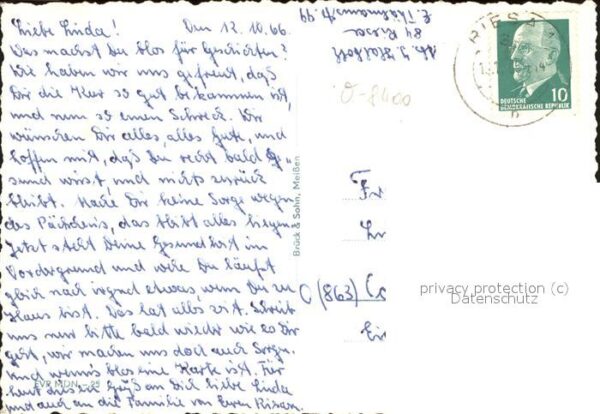 Liebe Linda! Den 12.10.66
Was machst Du blos für Geschichten?
Wie haben wir uns gefreut, daß
Dir die Kur so gut bekommen ist
und nun so einen Schreck. Wir
wünschen Dir alles, alles Gute, und
hoffen mit, daß Du recht bald ge-
sund wirst, und nichts zurück
bleibt. Mache Dir keine Sorge wegen
des Päckchens, das bleibt alles liegen.
Jetzt steht Deine Gesundheit im
Vordergrund und wie Du läufst
gleich nach irgend etwas, wenn Du zu
Haus bist. Das hat alles Zeit. Schreib
uns nun bitte bald wieder wie es Dir
geht, wir machen uns doch auch Sorge.
Und wenn's blos eine Karte ist. Für
heut dies ein Gruß an Dich liebe Linda
und auch an die Familie von Euren Riesaern
EVP MDN -,25
Brück & Sohn, Meißen
84 Riesa
E. Thälmannstr. 99
O-8400
RIESA 1
b
10
DEUTSCHE
DEMOKRATISCHE REPUBLIK
Fr
(863)
privacy protection (c)
Datenschutz